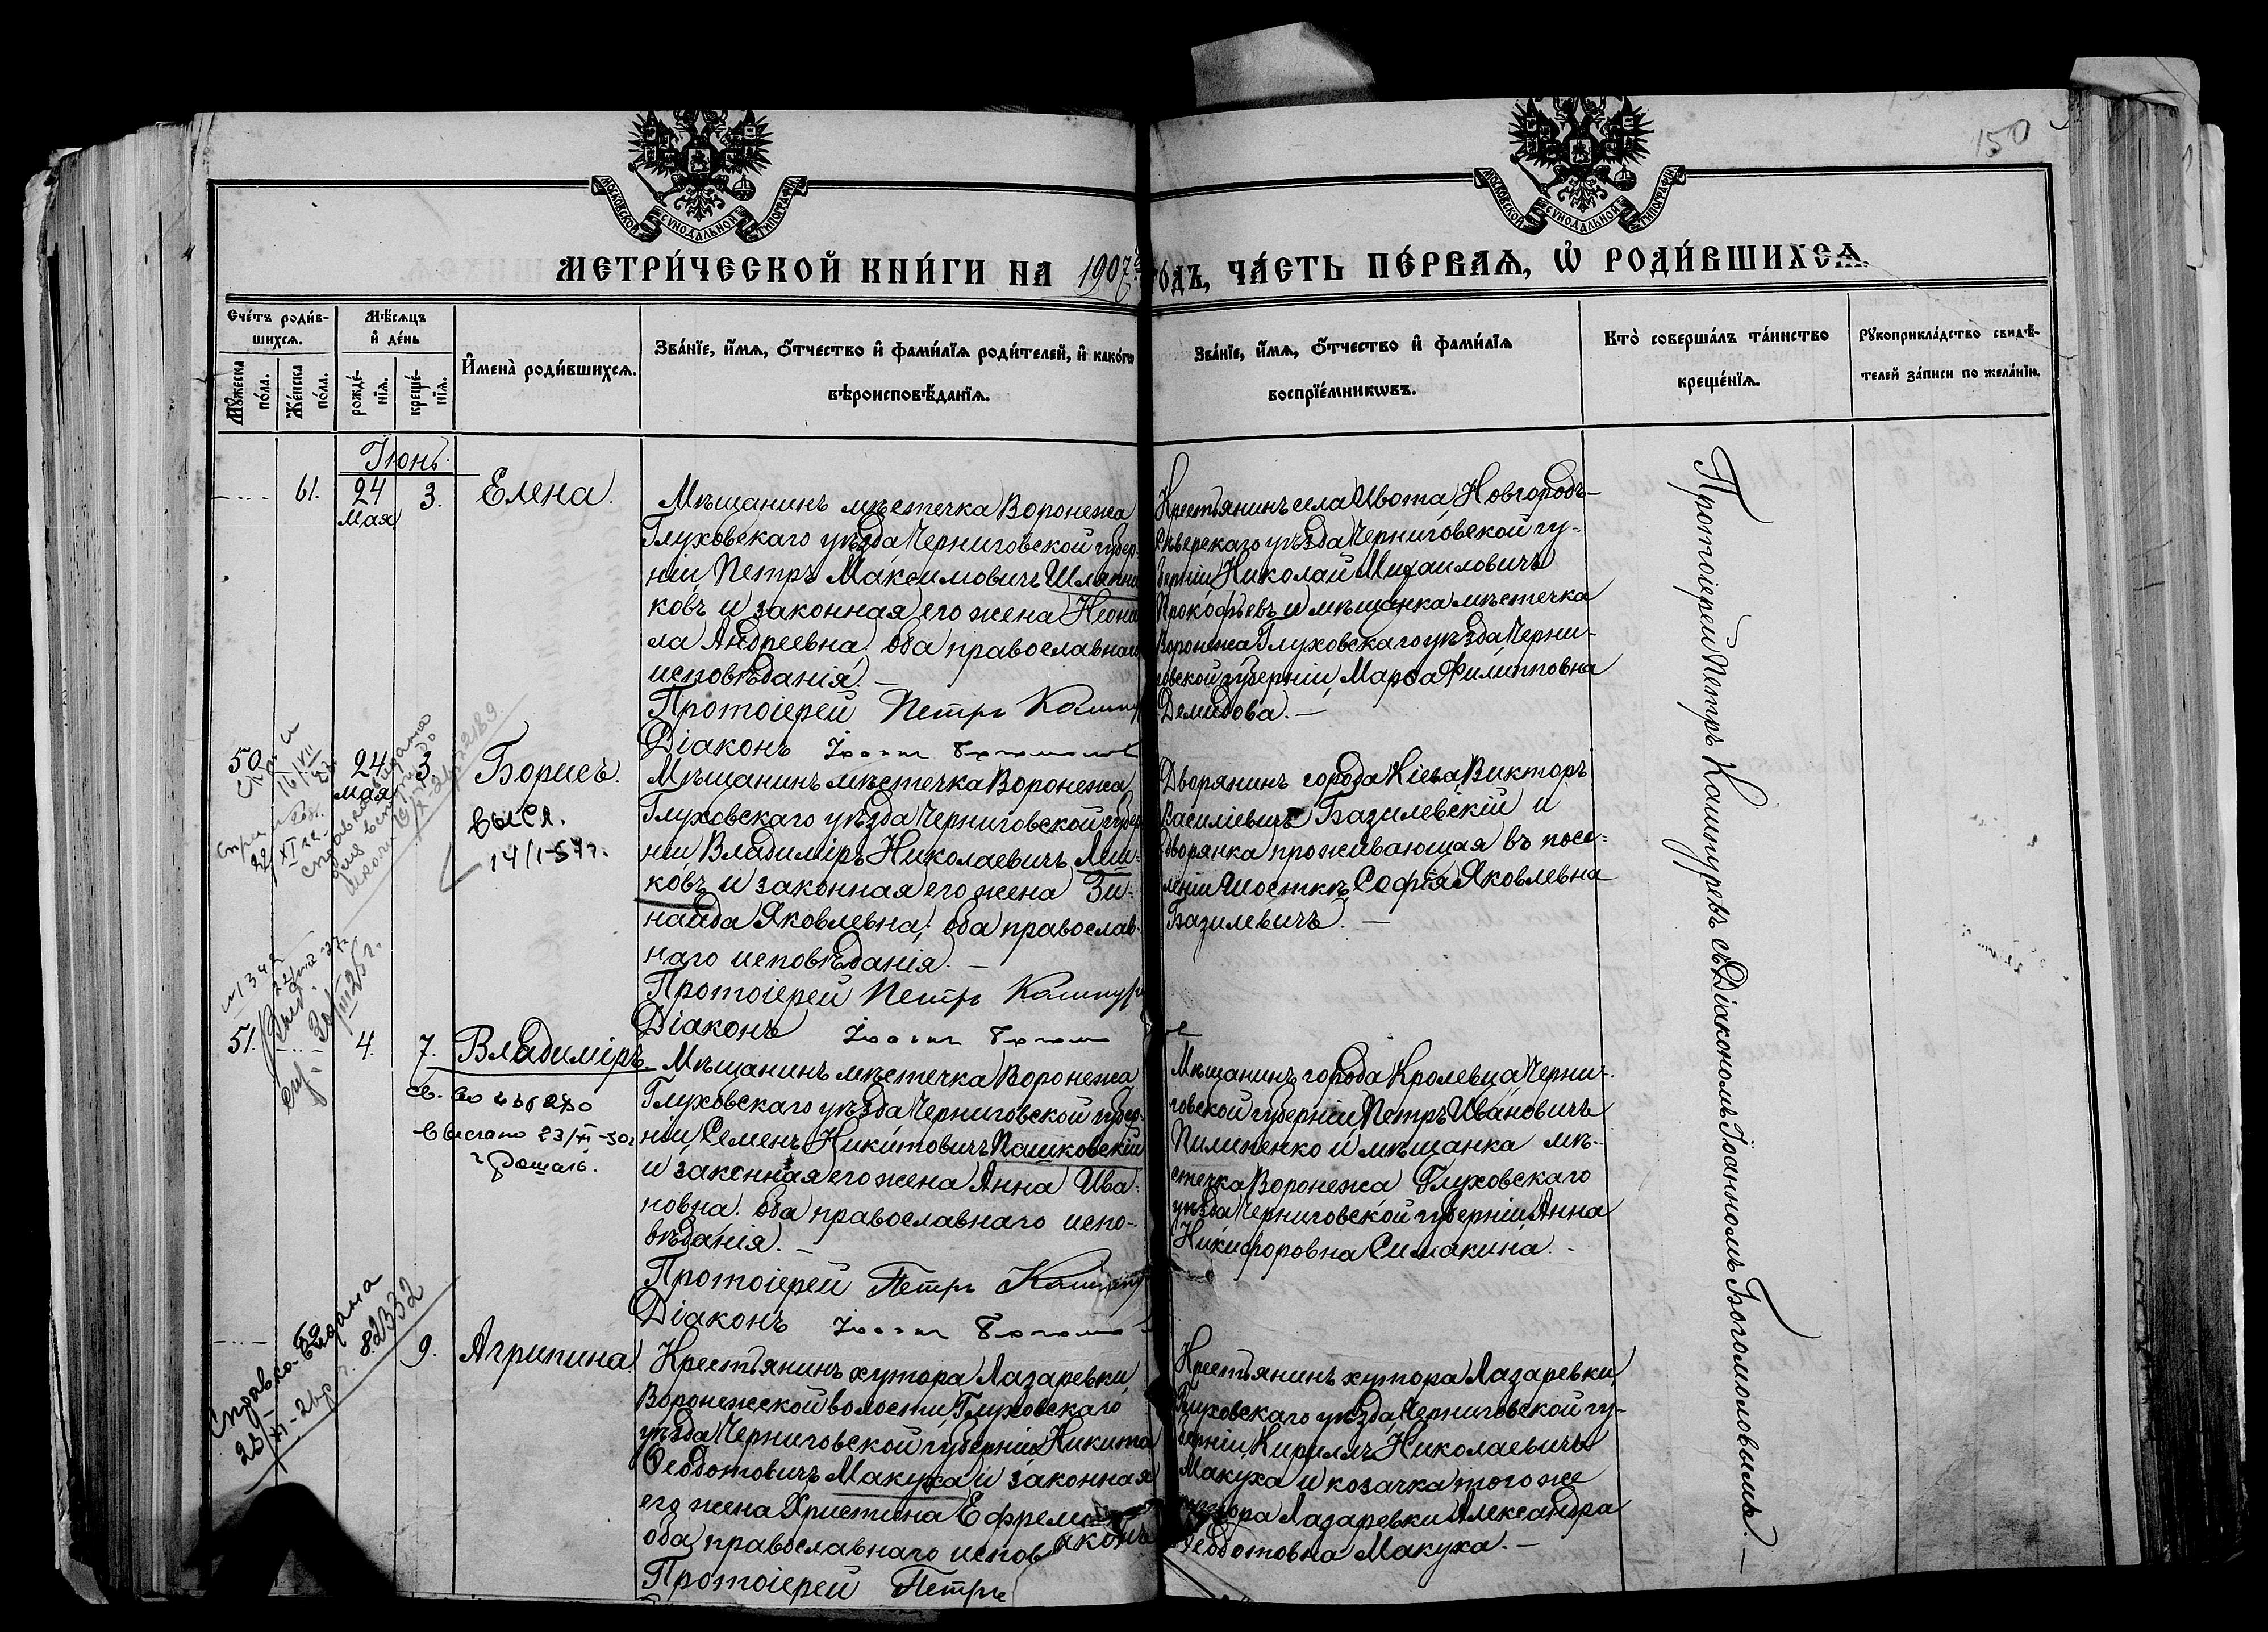 150
МОСКОВСКОЙ СУНОДАЛЬНОЙ ТИПОГРАФІИ
МОСКОВСКОЙ СУНОДАЛЬНОЙ ТИПОГРАФІИ
МЕТРИ́ЧЕСКОЙ КНИ́ГИ НА 1907 го́дъ, ЧА́СТЬ ПЕ́РВАѦ, Ѿ РОДИ́ВШИХСѦ.
Сче́тъ роди́в-
шихсѧ.
Мѣ́сѧцъ
и҆ де́нь
Мꙋ́жеска
по́ла.
Же́нска
по́ла.
рожде́-
нїѧ.
креще́-
нїѧ.
И҆мена̀ роди́вшихсѧ.
Зва́нїе, и҆́мѧ, ѻ҆́тчество и҆ фами́лїѧ роди́телей, и҆ како́гѡ
вѣроисповѣ́данїѧ.
Зва́нїе, и҆́мѧ, ѻ҆́тчество и҆ фами́лїѧ
воспрїе́мникѡвъ.
Кто̀ соверша́лъ та́инство
креще́нїѧ.
Рꙋкоприкла́дство свидѣ́-
телей за́писи по жела́нїю.
Іюнь.
61. 24 Мая 3. Елена.
Мѣщанинъ мѣстечка Воронежа
Глуховскаго уѣзда Черниговской губер-
ніи Петръ Максимовичъ Шляпни
ковъ и законная его жена Неони
ла Андреевна, оба православнаго
исповѣданія. –
Протоіерей Петръ Кашпур
Діаконъ Іоаннъ Богомолов
Крестьянинъ села Ивота Новгородъ-
Сѣверскаго уѣзда Черниговской гу-
берніи Николай Михаиловичъ
Прокофьевъ и мѣщанка мѣстечка
Воронежа Глуховскаго уѣзда Черни-
говской губерніи Марѳа Филипповна
Демидова. –
Протоіерей Петръ Кашпуревъ съ Діакономъ Іоанномъ Богомоловымъ. –
50. 24 мая 3. Борисъ.
16/VII
высл.
14/I-54г.
Мѣщанинъ мѣстечка Воронежа
Глуховскаго уѣзда Черниговской губер
ніи Владиміръ Николаевичъ Лип-
ковъ и законная его жена Зи-
наида Яковлевна, оба православ-
наго исповѣданія. –
Протоіерей Петръ Кашпур
Діаконъ Іоаннъ Богомо
Дворянинъ города Кіева Викторъ
Василіевичъ Базилевскій и
дворянка проживающая въ посе-
леніи Шосткѣ Софія Яковлевна
Базилевичъ. –
51. 4. 7. Владиміръ
выслано 23/XI-50г
Мѣщанинъ мѣстечка Воронежа
Глуховскаго уѣзда Черниговской губер-
ніи Семенъ Никитовичъ Пашковскій
и законная его жена Анна Ива-
новна, оба православнаго испо-
вѣданія. –
Протоіерей Петръ Кашпур
Діаконъ Іоаннъ Богомо
Мѣщанинъ города Кролевца Черни-
говской губерніи Петръ Ивановичъ
Пилипенко и мѣщанка мѣ-
стечка Воронежа Глуховскаго
уѣзда Черниговской губерніи Анна
Никифоровна Симакина. –
Справка выдана
82332
9. Агрипина.
Крестьянинъ хутора Лазаревки,
Воронежской волости Глуховскаго
уѣзда Черниговской губерніи Никита
Ѳеодотовичъ Макуха и законная
его жена Христина Ефрем
оба православнаго испов
Протоіерей Петръ
аконъ
Крестьянинъ хутора Лазаревки,
Глуховскаго уѣзда Черниговской гу-
берніи Кириллъ Николаевичъ
Макуха и козачка того же
хутора Лазаревки Александра
Ѳеодотовна Макуха. –